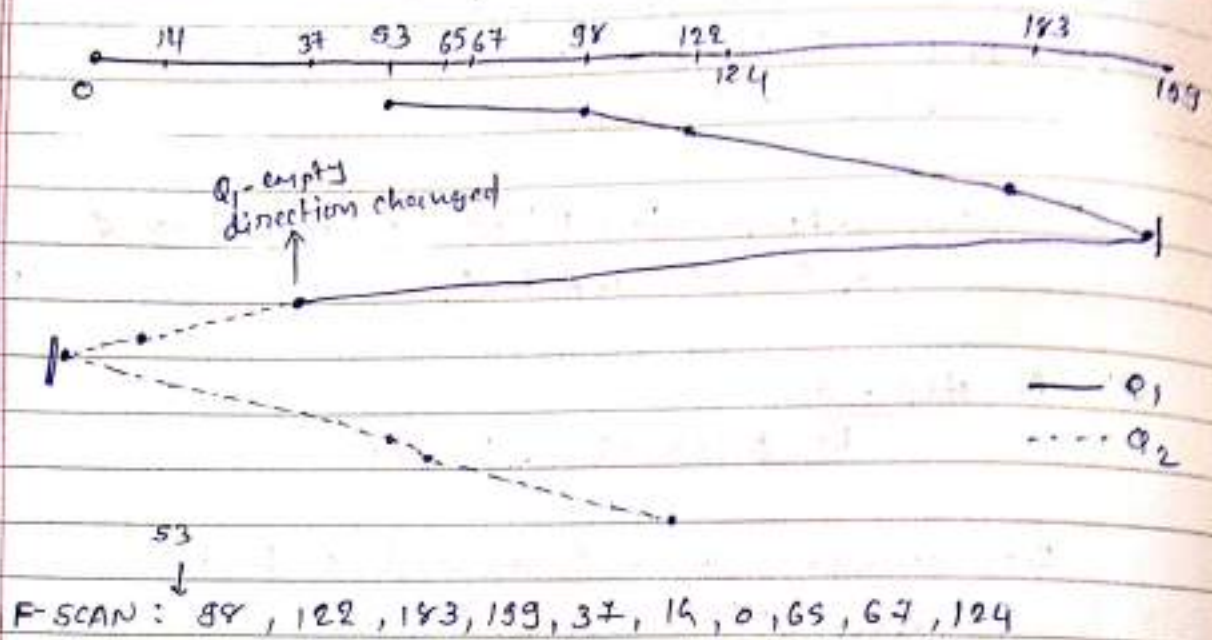 14 37 53 65 67 98 122 183
0 124 199
Q1 - empty
direction changed
Q1
Q2
53
F-SCAN: 98, 122, 183, 199, 37, 14, 0, 65, 67, 124